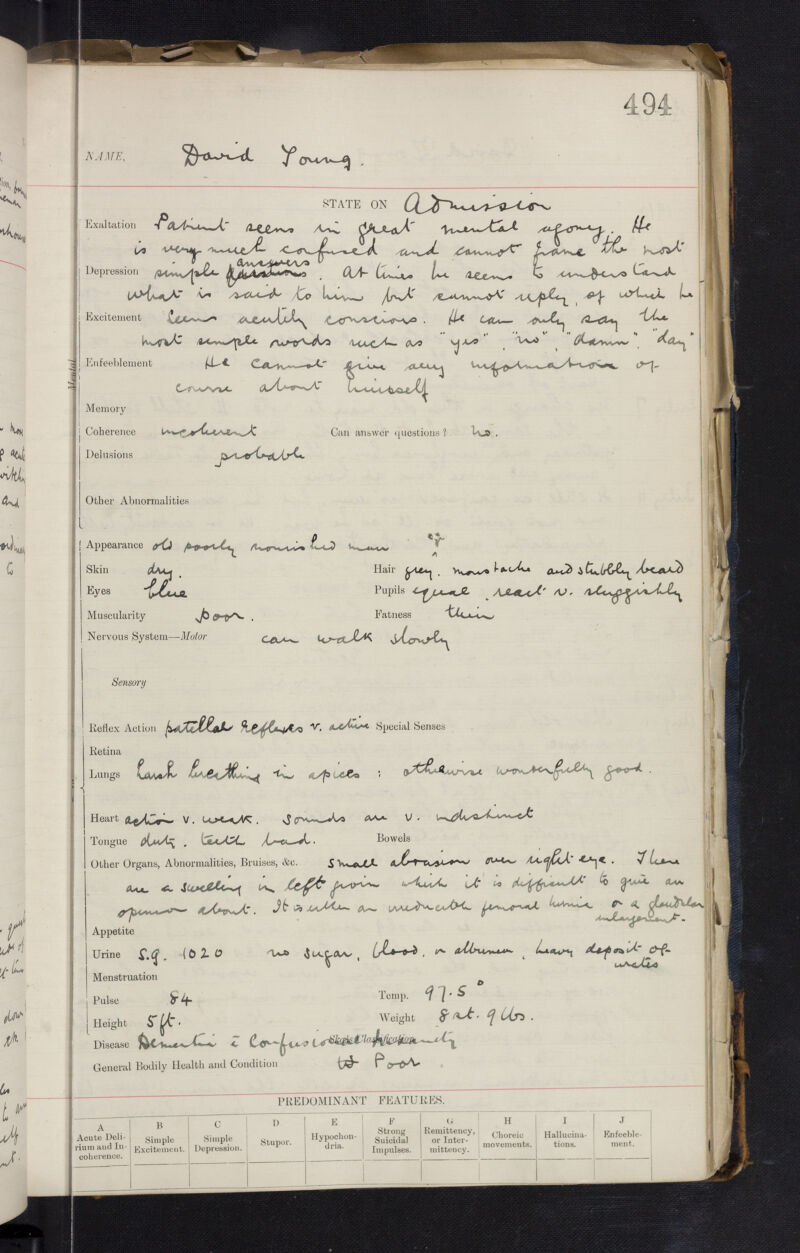 494
NAME, David Young.
STATE ON Admission
Exaltation Patient seems in great mental agony. He
is very much confused and cannot frame the most
Depression simple questions answers. At times he seems to understand
what is said to him but cannot reply, of which he
Excitement seems acutely conscious. He can only say the
most simple words such as "yes", "no", "damn", "day"
Enfeeblement He cannot give any information of
course about himself
Mental
Memory
Coherence incoherent Can answer questions? No.
Delusions probable
Other Abnormalities
Appearance old poorly nourished man
Skin dry. Hair grey. moustache and stubbly beard
Eyes blue Pupils equal, react v. sluggishly
Muscularity poor. Fatness thin
Nervous System—Motor can walk slowly
Sensory
Reflex Action patellar reflexes v. active Special Senses
Retina
Lungs harsh breathing in apices : otherwise wonderfully good.
Heart action v. weak. Sounds are v. indistinct
Tongue dirty. teeth bad. Bowels
Other Organs, Abnormalities, Bruises, &c. Small abrasion over right eye. There
are a swelling in left groin which it is difficult to give an
opinion about. It is either an irreducible femoral hernia or a glandular
enlargement.
Appetite
Urine S.g. 1020 no sugar, blood, or albumen, heavy deposit of
urates
Menstruation
Pulse 84 Temp. 97.5°
Height 5ft. Weight 8st. 9lbs.
Disease Dementia c̄ Confusional Insanity
General Bodily Health and Condition Poor
PREDOMINANT FEATURES.
A Acute Delirium and Incoherence.
B Simple Excitement.
C Simple Depression.
D Stupor.
E Hypochondria.
F Strong Suicidal Impulses.
G Remittency, or Intermittency.
H Choreic movements.
I Hallucinations.
J Enfeeblement.